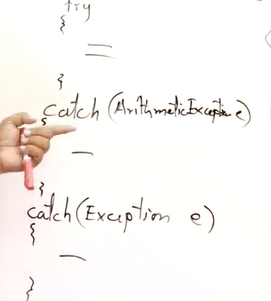 try
{
}
catch (ArithmeticException e)
{
}
catch (Exception e)
{
}